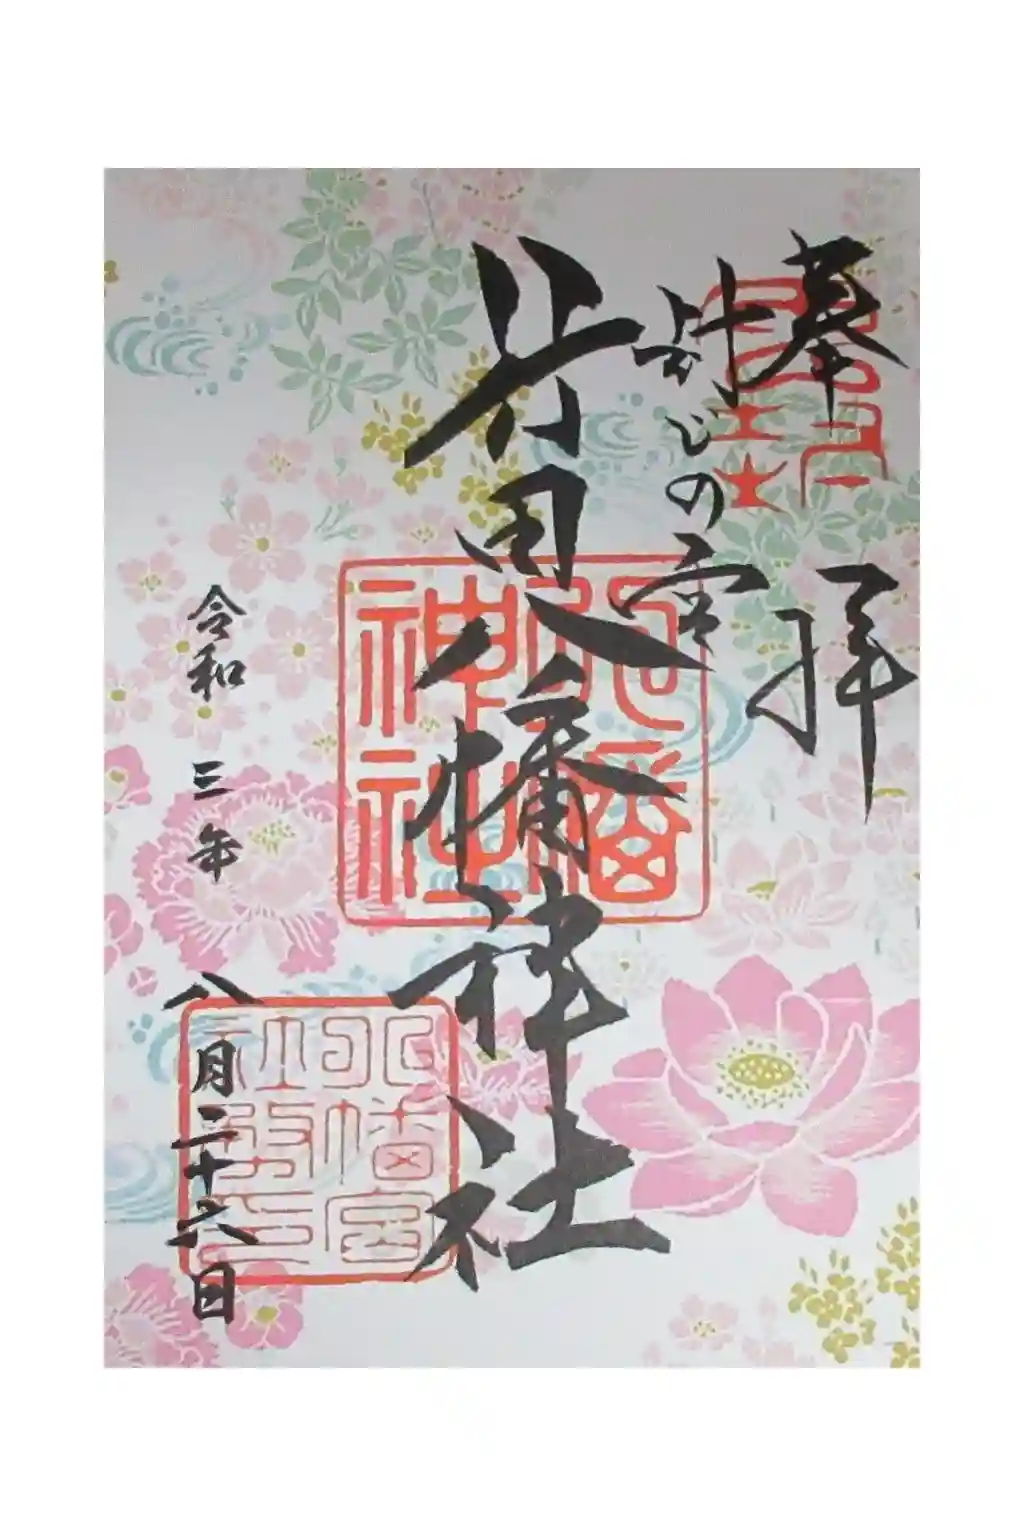 奉拝
じの宮
竹田八幡神社
八幡
神社
八幡宮
社務所印
令和三年八月二十六日